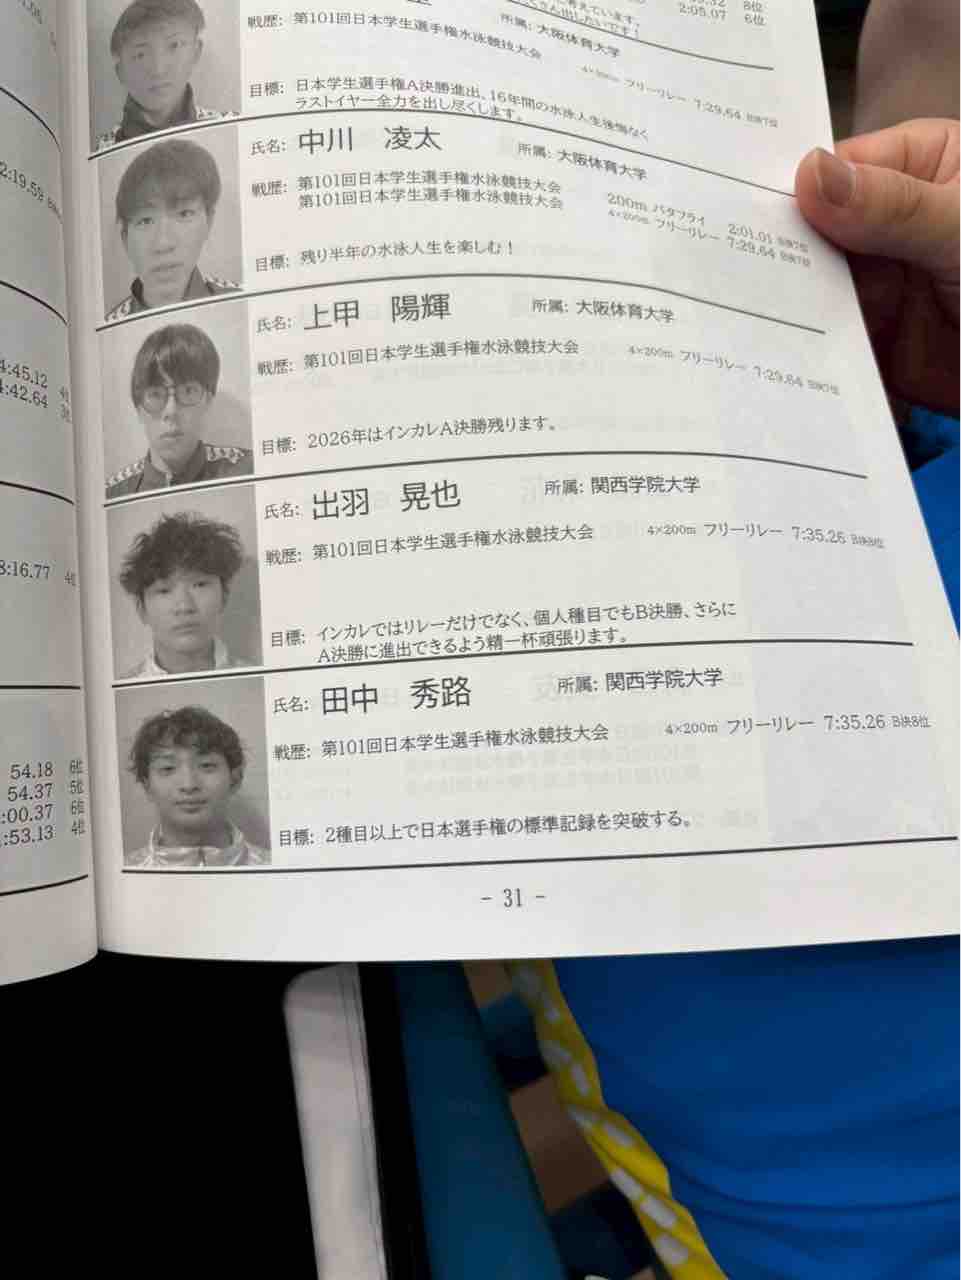 2:05.07 6位
戦歴: 第101回日本学生選手権水泳競技大会
所属: 大阪体育大学
4×200m フリーリレー 7:29.64 B決7位
目標: 日本学生選手権A決勝進出、16年間の水泳人生後悔なく
ラストイヤー全力を出し尽くします。
氏名: 中川 凌太 所属: 大阪体育大学
戦歴: 第101回日本学生選手権水泳競技大会 200m バタフライ 2:01.01 B決7位
第101回日本学生選手権水泳競技大会 4×200m フリーリレー 7:29.64 B決7位
目標: 残り半年の水泳人生を楽しむ!
氏名: 上甲 陽輝 所属: 大阪体育大学
戦歴: 第101回日本学生選手権水泳競技大会 4×200m フリーリレー 7:29.64 B決7位
目標: 2026年はインカレA決勝残ります。
氏名: 出羽 晃也 所属: 関西学院大学
戦歴: 第101回日本学生選手権水泳競技大会 4×200m フリーリレー 7:35.26 B決8位
目標: インカレではリレーだけでなく、個人種目でもB決勝、さらに
A決勝に進出できるよう精一杯頑張ります。
氏名: 田中 秀路 所属: 関西学院大学
戦歴: 第101回日本学生選手権水泳競技大会 4×200m フリーリレー 7:35.26 B決8位
目標: 2種目以上で日本選手権の標準記録を突破する。
- 31 -
2:19.59
4:45.12 4位
4:42.64 3位
8:16.77 4位
54.18 6位
54.37 5位
:00.37 6位
:53.13 4位